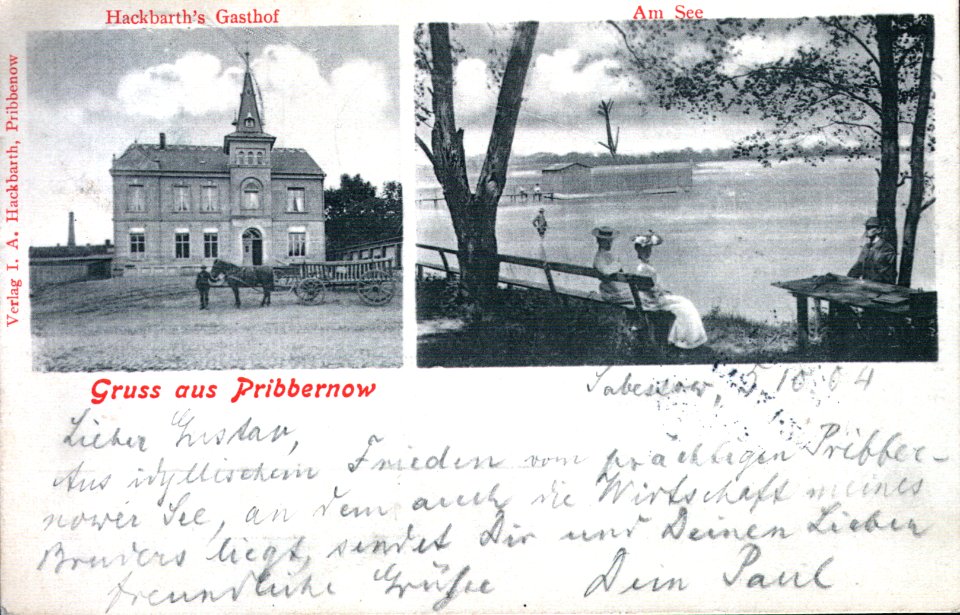 Hackbarth's Gasthof
Am See
Verlag I. A. Hackbarth, Pribbenow
Gruss aus Pribbernow
5.10.04
Lieber Gustav,
Aus idyllischem Frieden vom prächtigen Pribber-
nower See, an dem auch die Wirtschaft meines
Bruders liegt, sendet Dir und Deinen Lieben
freundliche Grüße Dein Paul